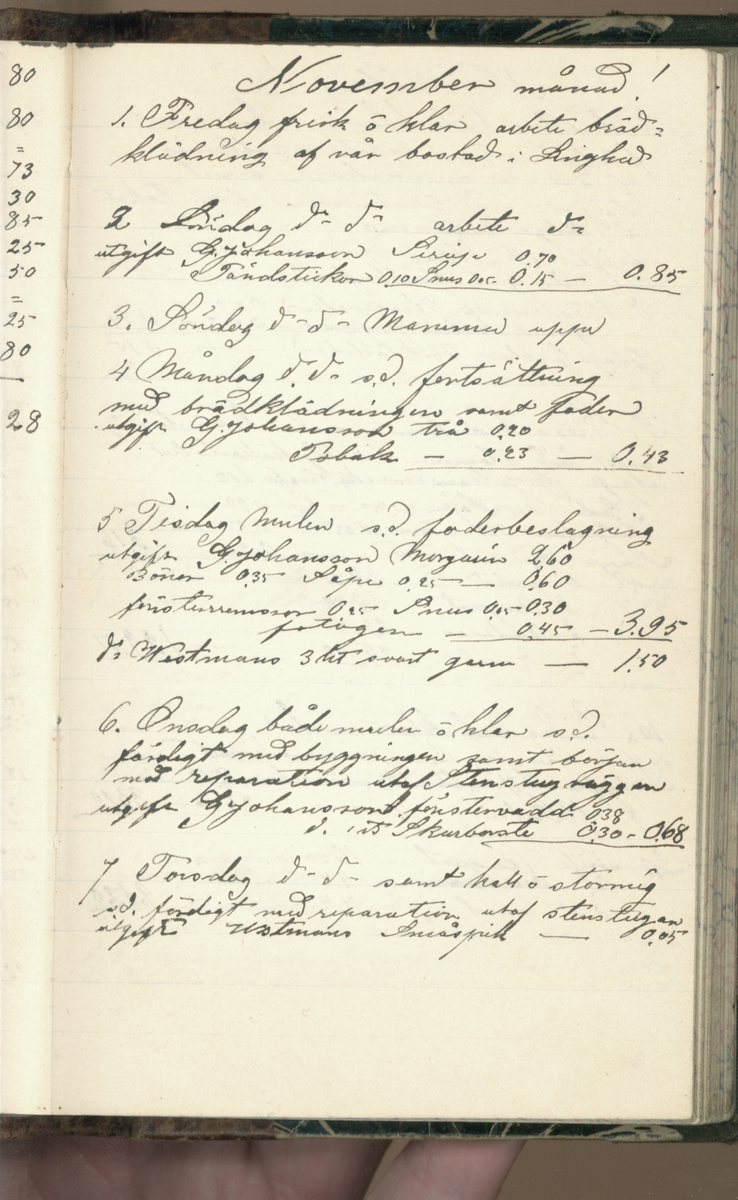 80
80
=
73
30
85
25
50
=
25
80
28
November månad!
1. Fredag frisk ö klar arbete bräd=
klädning af vår bostad i
2 Lördag d- d- arbete d=
utgift G. Johansson 0.70
Tändstickor 0.10 Snus 0.05 0.15 — 0.85
3. Söndag d- d- Mamma uppe
4 Måndag d. d- s.d. fortsättning
med brädklädningen samt foder
utgift G. Johansson trå 0.20
Tobak — 0.23 — 0.43
5 Tisdag mulen s.d. foderbeslagning
utgift G. Johansson Margarin 2.60
Bönor 0.35 Såpa 0.25 — 0.60
fönsterremsor 0.25 Snus 0.05 0.30
fotogen — 0.45 — 3.95
d= Westmans 3 ht svart garn — 1.50
6. Onsdag både mulen ö klar s.d.
färdigt med byggningen samt början
med reparation utaf Stenstugväggen
utgift G. Johansson fönstervadd 0.38
d. 1 st Skurborste 0.30 - 0.68
7 Torsdag d- d- samt kallt ö stormig
s.d. färdigt med reparation utaf stenstugan
utgift Westmans Småspik — 0.05